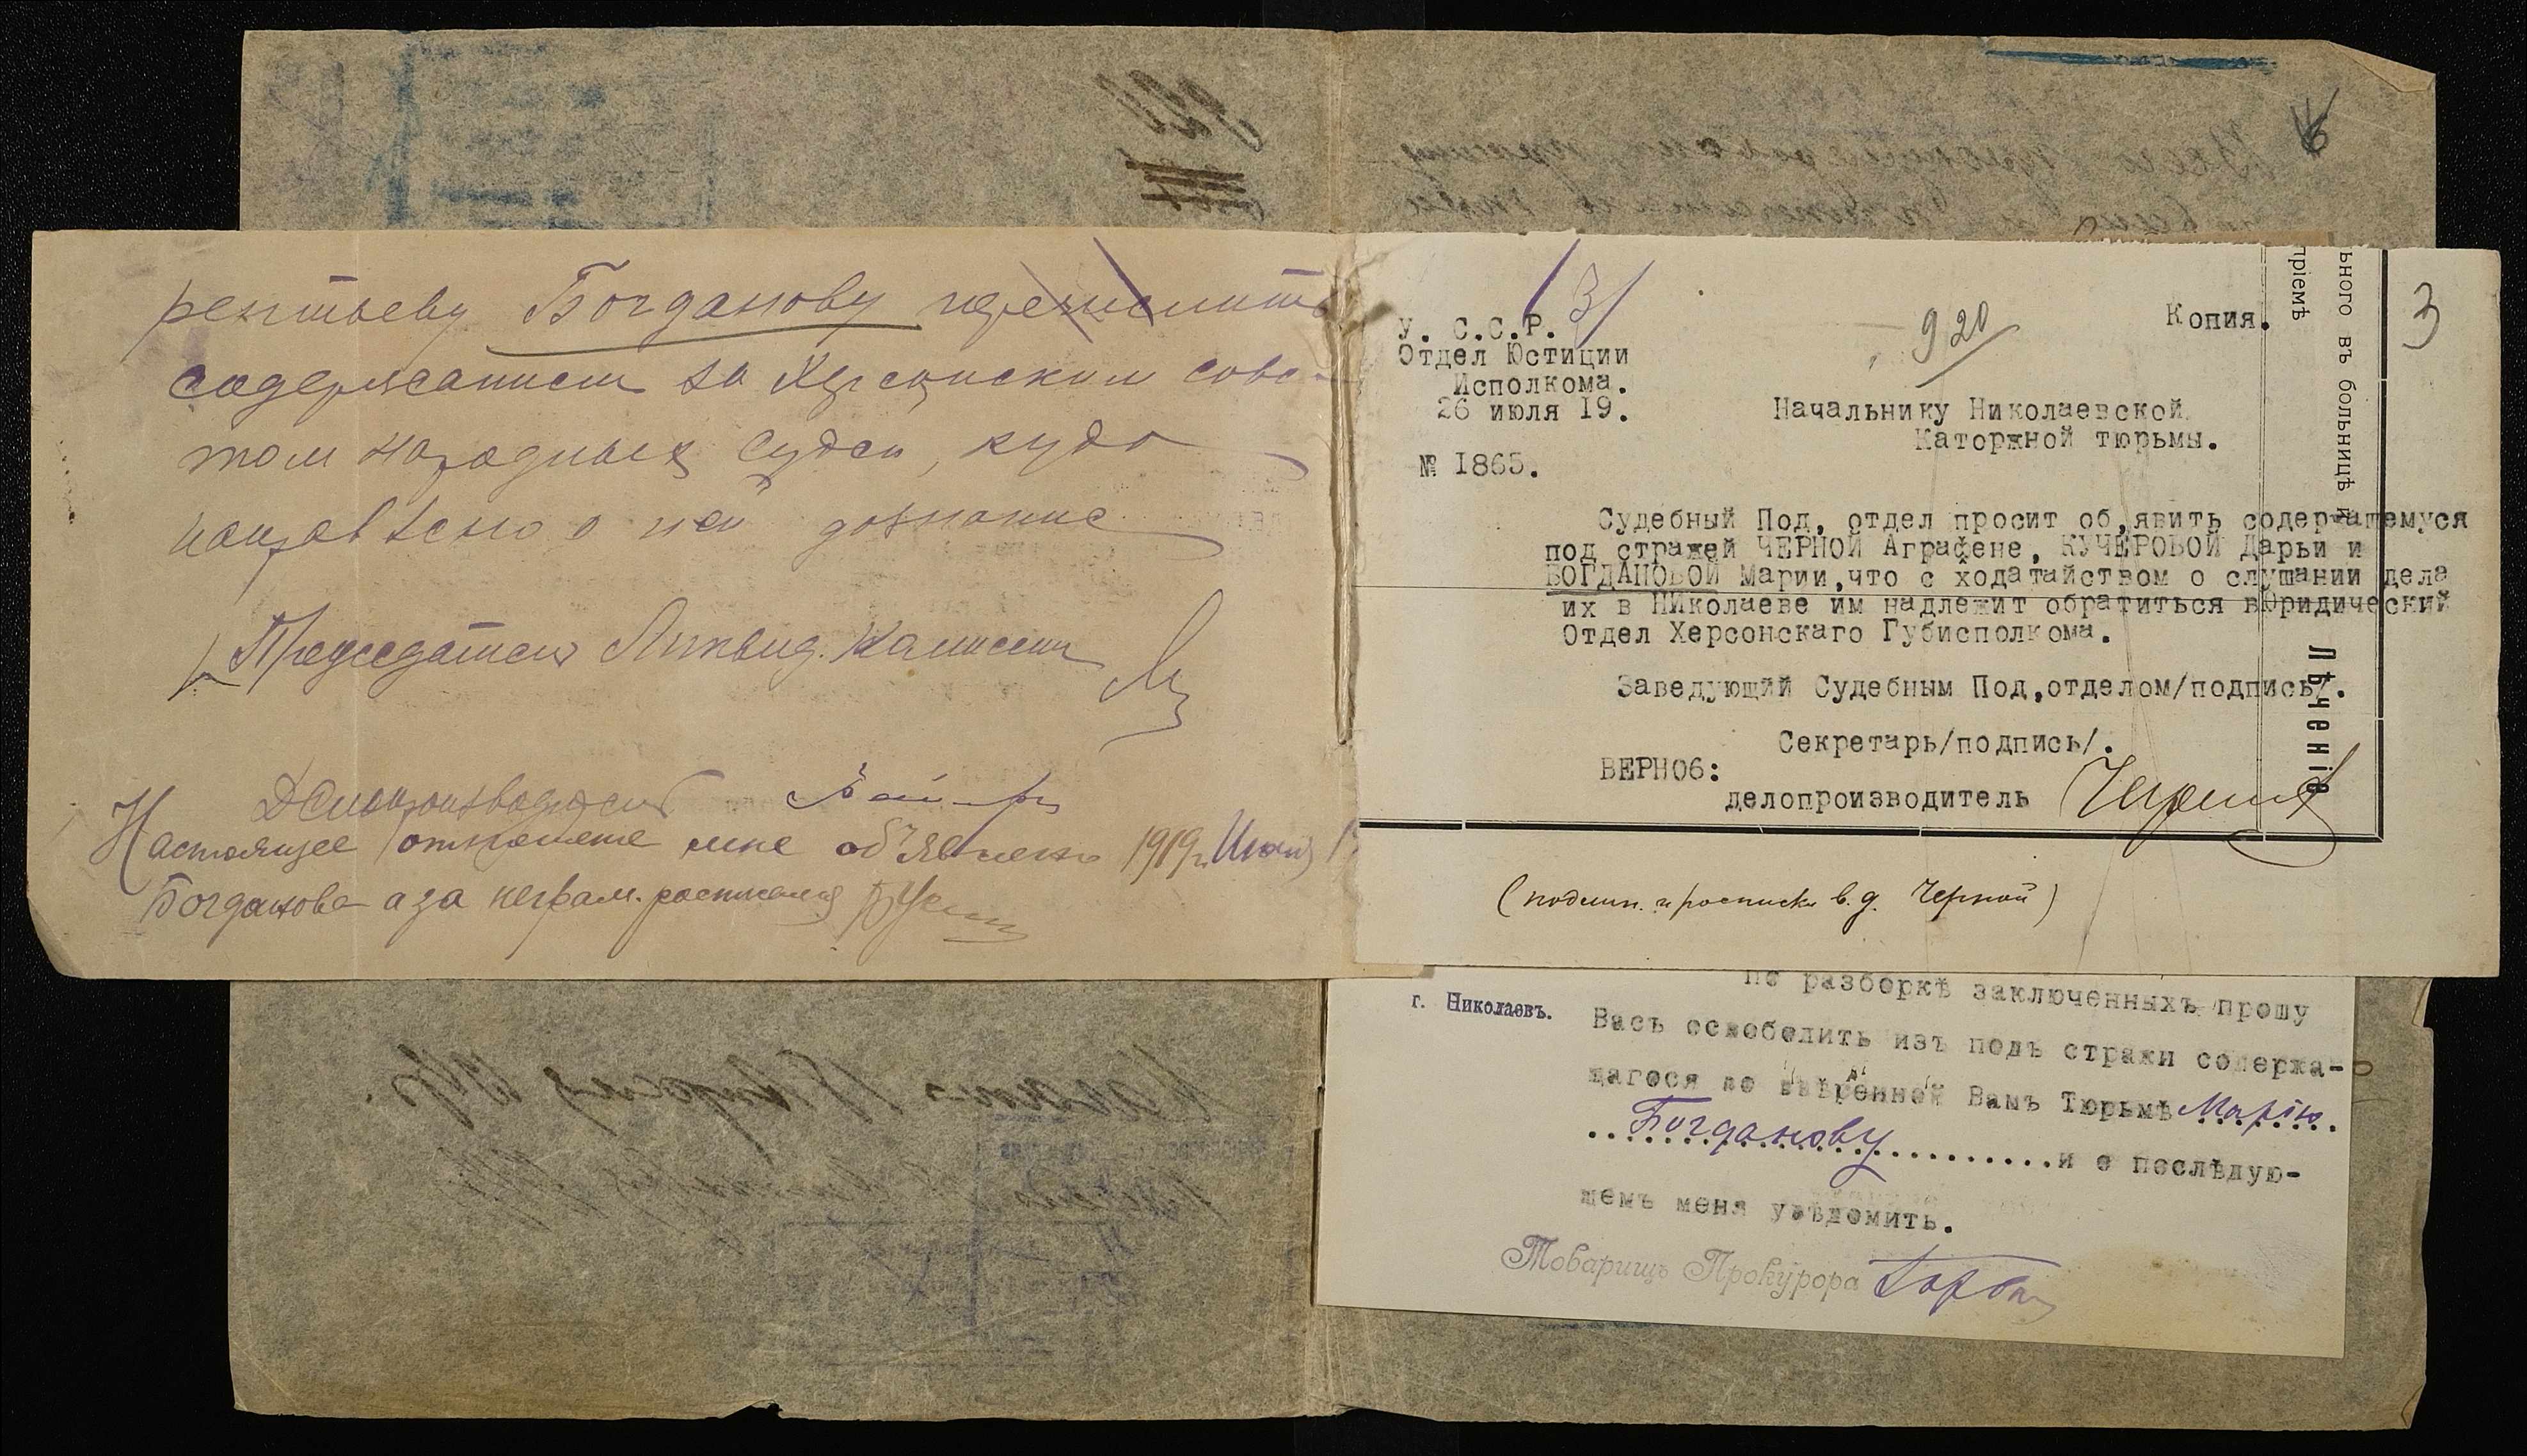 рентьеву Богданову перечислить
содержанием за Херсонским сове-
том народных судей, куда
направлено о ней дознание
Председатель Ликвид. Комиссии
Делопроизводитель
Настоящее отношение мне объявлено 1919 г. Июня
Богданова а за неграм. росписался
/3/
У. С.С.Р.
920
Копия.
3
Отдел Юстиции
Исполкома.
26 июля 19.
Начальнику Николаевской
Каторжной тюрьмы.
№ 1865.
Судебный Под, отдел просит об,явить содержащемуся
под стражей ЧЕРНОЙ Аграфене, КУЧЕРОВОЙ Дарьи и
БОГДАНОВОЙ Марии,что с ходатайством о слушании дела
их в НИколаеве им надлежит обратиться вЮридический
Отдел Херсонскаго Губисполкома.
Заведующий Судебным Под,отделом/подпись/.
Секретарь/подпись/.
ВЕРНО6:
делопроизводитель
(подлин. и росписки в. д. Черной)
пріемъ
ьного въ больницѣ и
Лѣченіе
по разборкѣ заключенныхъ прошу
г. Николаевъ.
Васъ освободить изъ подъ стражи содержа-
щагося во ввѣренной Вамъ Тюрьмѣ Марію
Богданову и о послѣдую-
щемъ меня увѣдомить.
Товарищъ Прокурора
920